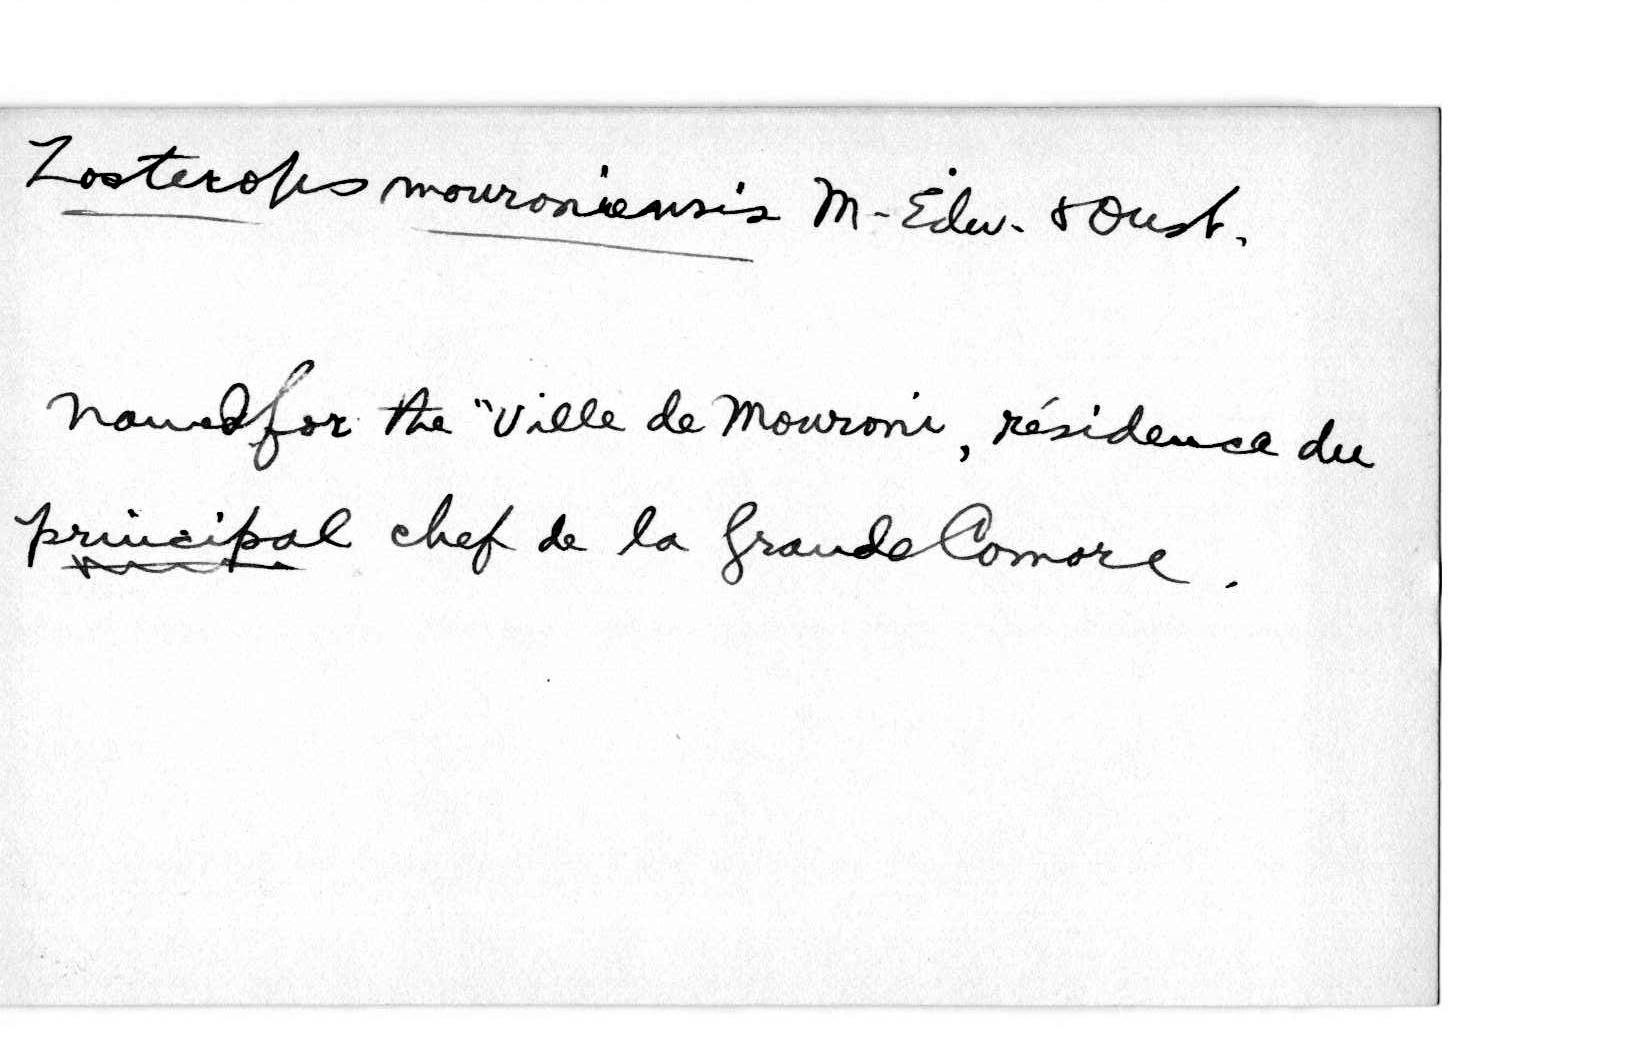 Zosterops mouroniensis M-Edw. & Oust.
Named for the "Ville de Mouroni, résidence du
principal chef de la Grande Comore.